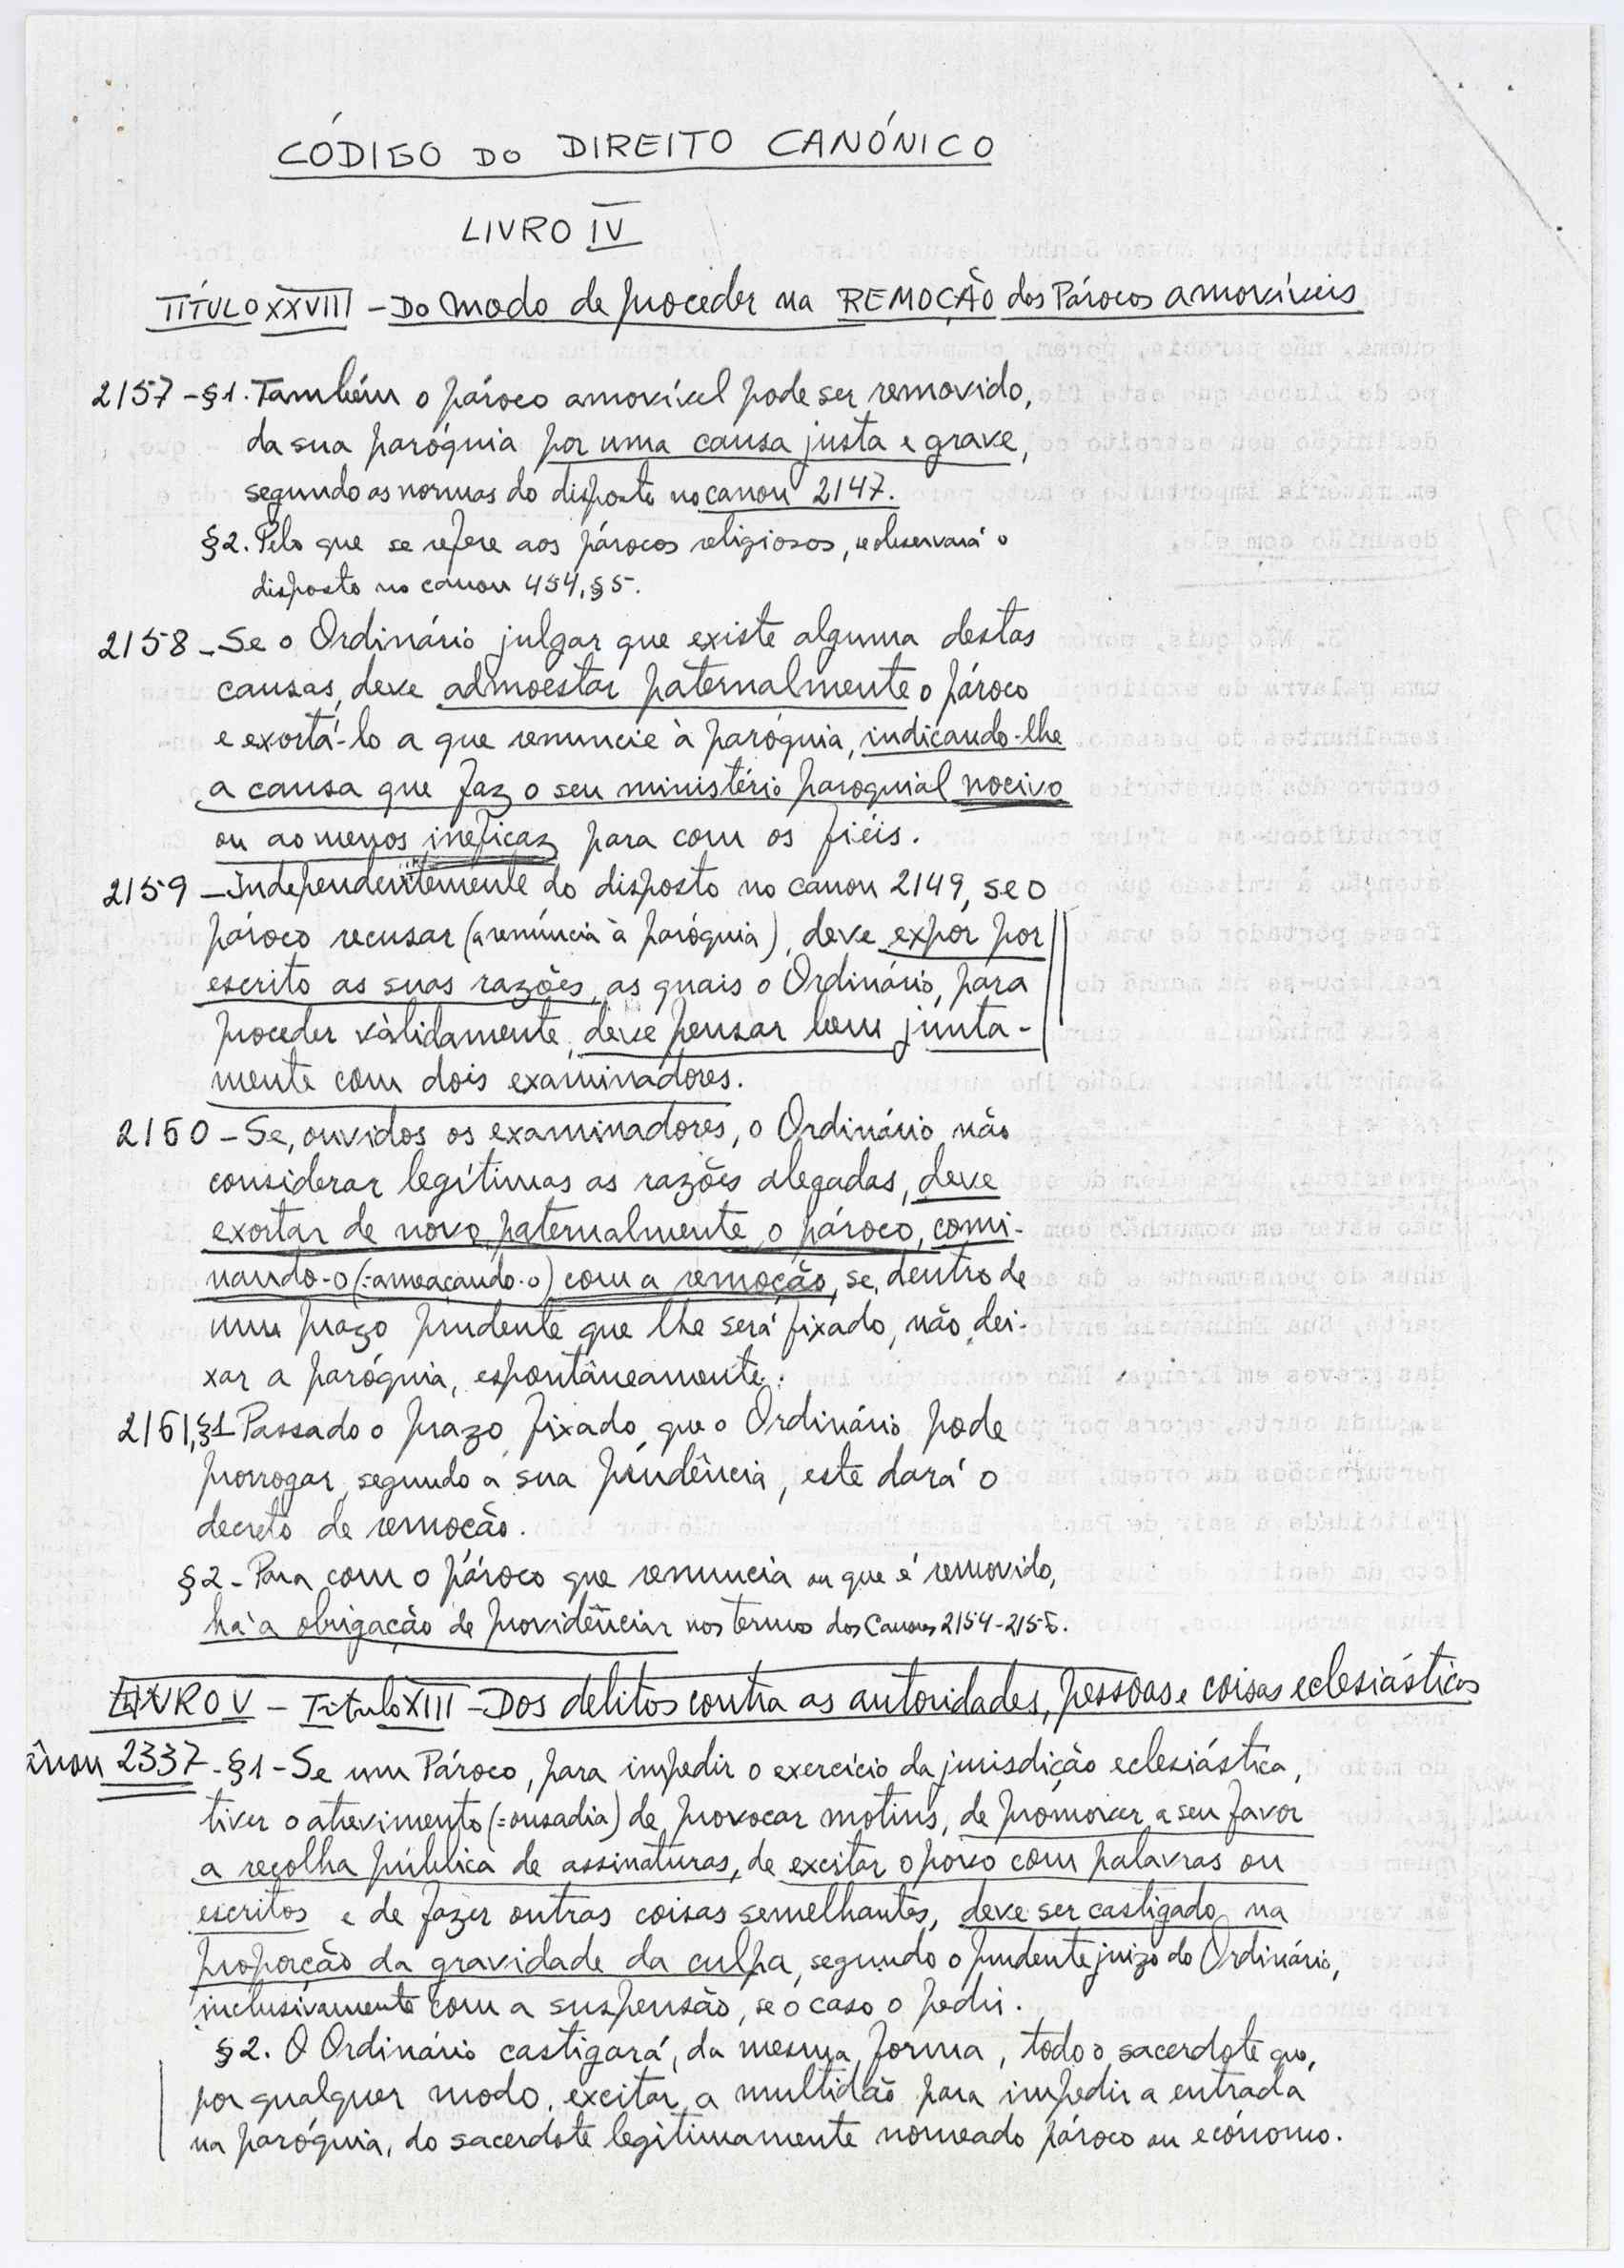 CÓDIGO DO DIREITO CANÓNICO
LIVRO IV
TÍTULO XXVIII - Do modo de proceder na REMOÇÃO dos Párocos amovíveis
2157 - §1. Também o pároco amovível pode ser removido,
da sua paróquia por uma causa justa e grave,
segundo as normas do disposto no canon 2147.
§2. Pelo que se refere aos párocos religiosos, se observará o
disposto no canon 454, §5.
2158 - Se o Ordinário julgar que existe alguma destas
causas, deve admoestar paternalmente o pároco
e exortá-lo a que renuncie à paróquia, indicando-lhe
a causa que faz o seu ministério paroquial nocivo
ou ao menos ineficaz para com os fiéis.
2159 - Independentemente do disposto no canon 2149, se o
pároco recusar (a renúncia à paróquia), deve expôr por
escrito as suas razões, as quais o Ordinário, para
proceder vàlidamente, deve pensar bem junta-
mente com dois examinadores.
2160 - Se, ouvidos os examinadores, o Ordinário não
considerar legítimas as razões alegadas, deve
exortar de novo paternalmente o pároco, comi-
nando-o (=ameaçando-o) com a remoção, se, dentro de
um prazo prudente que lhe será fixado, não dei-
xar a paróquia, espontâneamente.
2161, §1 Passado o prazo fixado, que o Ordinário pode
prorrogar, segundo a sua prudência, este dará o
decreto de remoção.
§2 - Para com o pároco que renuncia ou que é removido,
há a obrigação de providênciar nos termos dos Canones 2154-2156.
LIVRO V - Título XIII - Dos delitos contra as autoridades, pessoas e coisas eclesiásticas
ânon 2337 - §1 - Se um Pároco, para impedir o exercício da jurisdição eclesiástica,
tiver o atrevimento (=ousadia) de provocar motins, de promover a seu favor
a recolha pública de assinaturas, de excitar o povo com palavras ou
escritos e de fazer outras coisas semelhantes, deve ser castigado na
proporção da gravidade da culpa, segundo o prudente juizo do Ordinário,
inclusivamente com a suspensão, se o caso o pedir.
§2. O Ordinário castigará, da mesma forma, todo o sacerdote que,
por qualquer modo, excitar a multidão para impedir a entrada
na paróquia, do sacerdote legìtimamente nomeado pároco ou ecónomo.